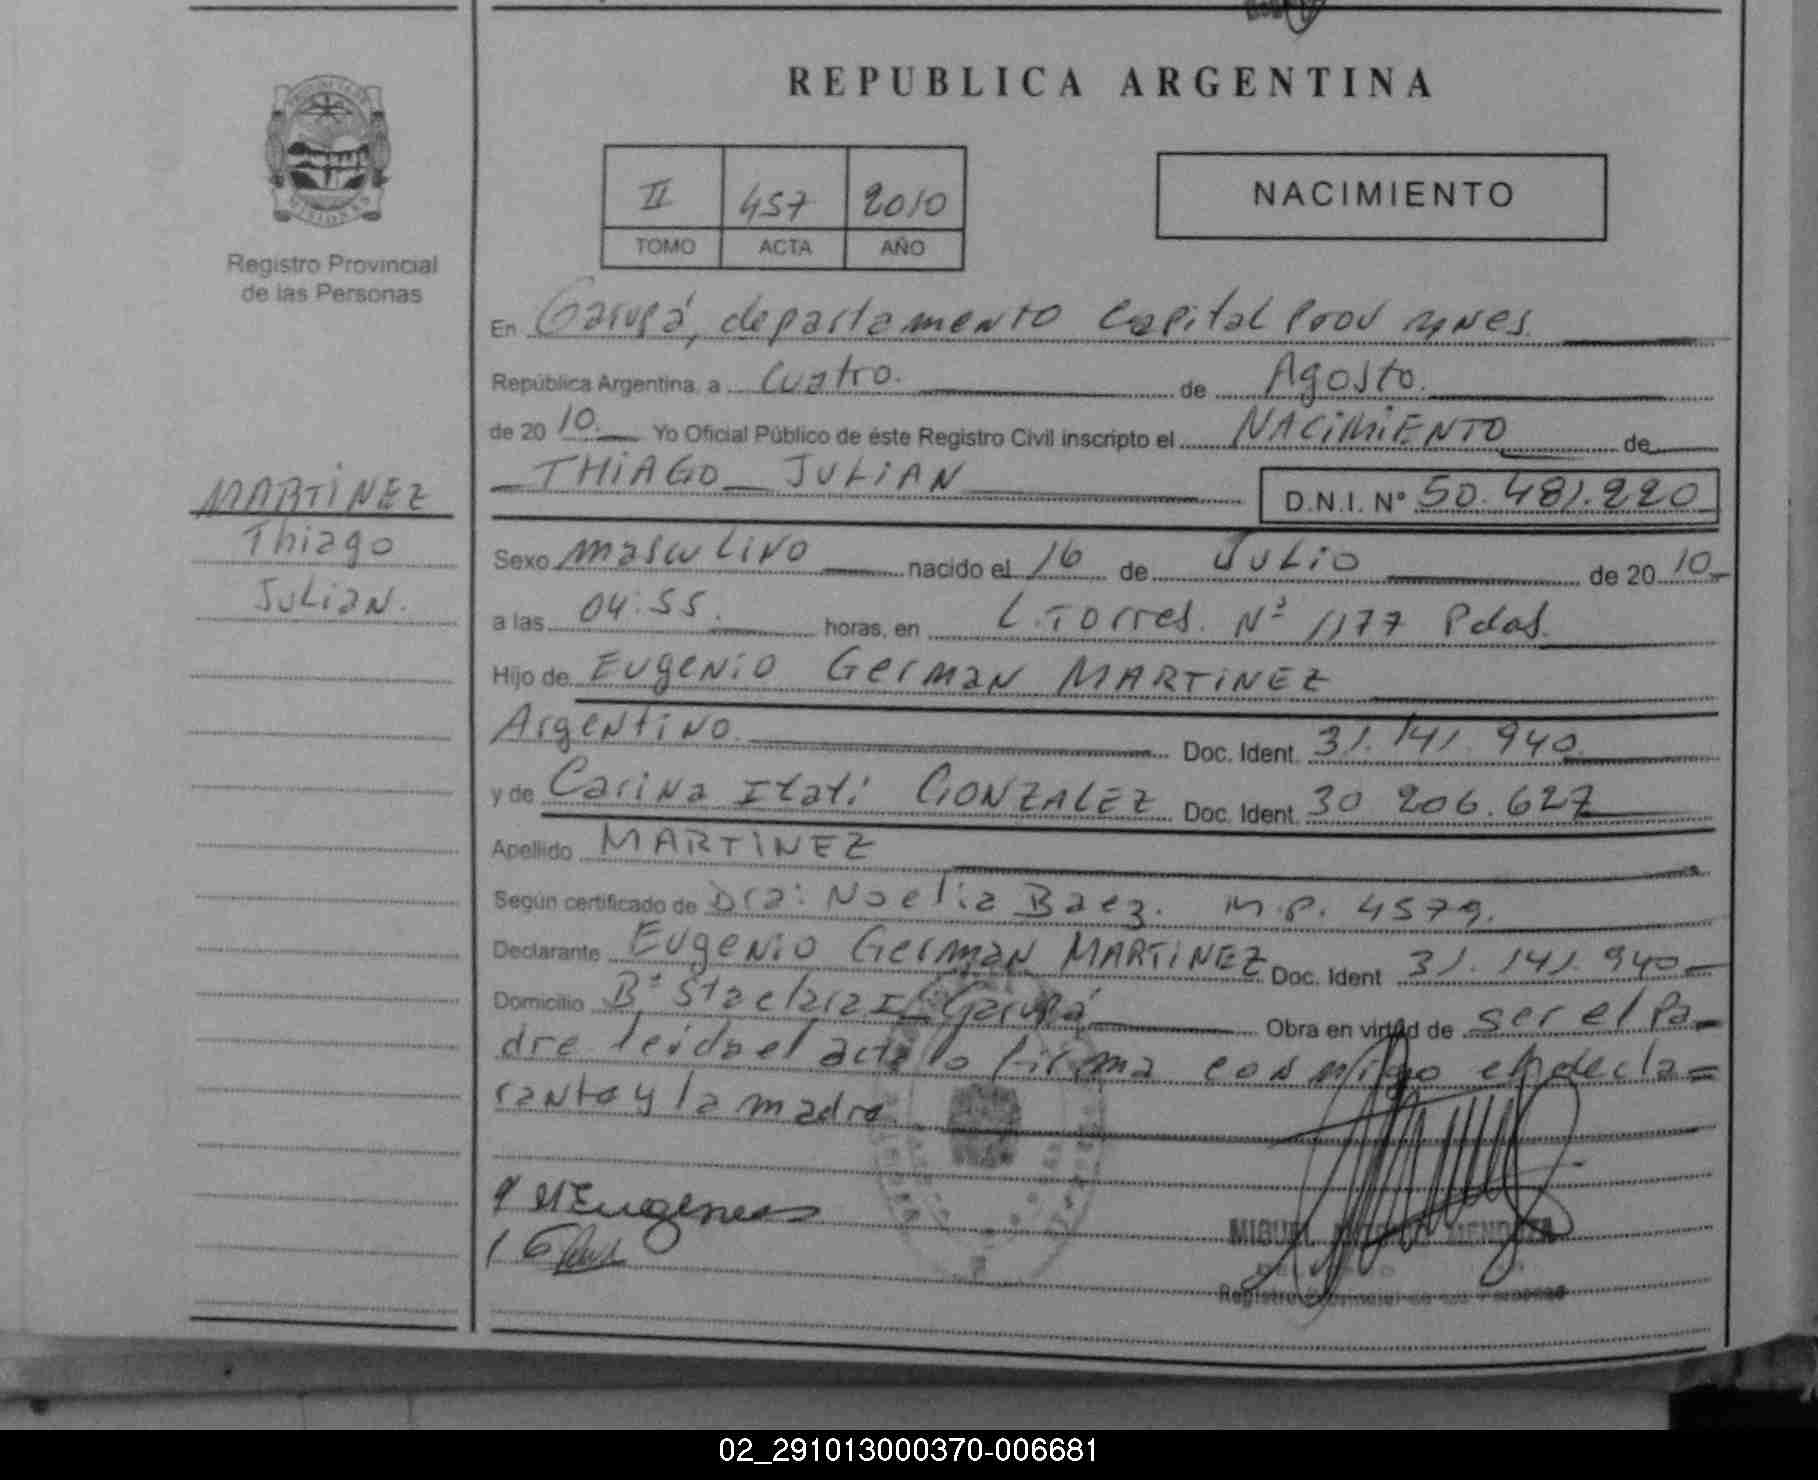 REPUBLICA ARGENTINA
II 457 2010
TOMO ACTA AÑO
NACIMIENTO
PROVINCIA DE
MISIONES
Registro Provincial
de las Personas
MARTINEZ
Thiago
Julian.
En Garupá, departamento Capital Prov Mnes.
República Argentina, a Cuatro. de Agosto.
de 20 10. Yo Oficial Público de éste Registro Civil inscripto el NACIMIENTO de
THIAGO JULIAN D.N.I. Nº 50.481.220
Sexo masculino nacido el 16 de Julio de 20 10
a las 04:55. horas, en L. Torres. Nº 1177 Pdas.
Hijo de Eugenio German MARTINEZ
Argentino. Doc. Ident. 31.141.940
y de Carina Itati GONZALEZ Doc. Ident. 30 206.627
Apellido MARTINEZ
Según certificado de Dra: Noelia Baez. M.P. 4579.
Declarante Eugenio German MARTINEZ Doc. Ident 31.141.940
Domicilio Bº Sta clara I Garupá Obra en virtud de ser el Pa-
dre leida el acta lo firma conmigo el decla=
rante y la madre
MIGUEL MENDOZA
Registro Provincial de las Personas
02_291013000370-006681